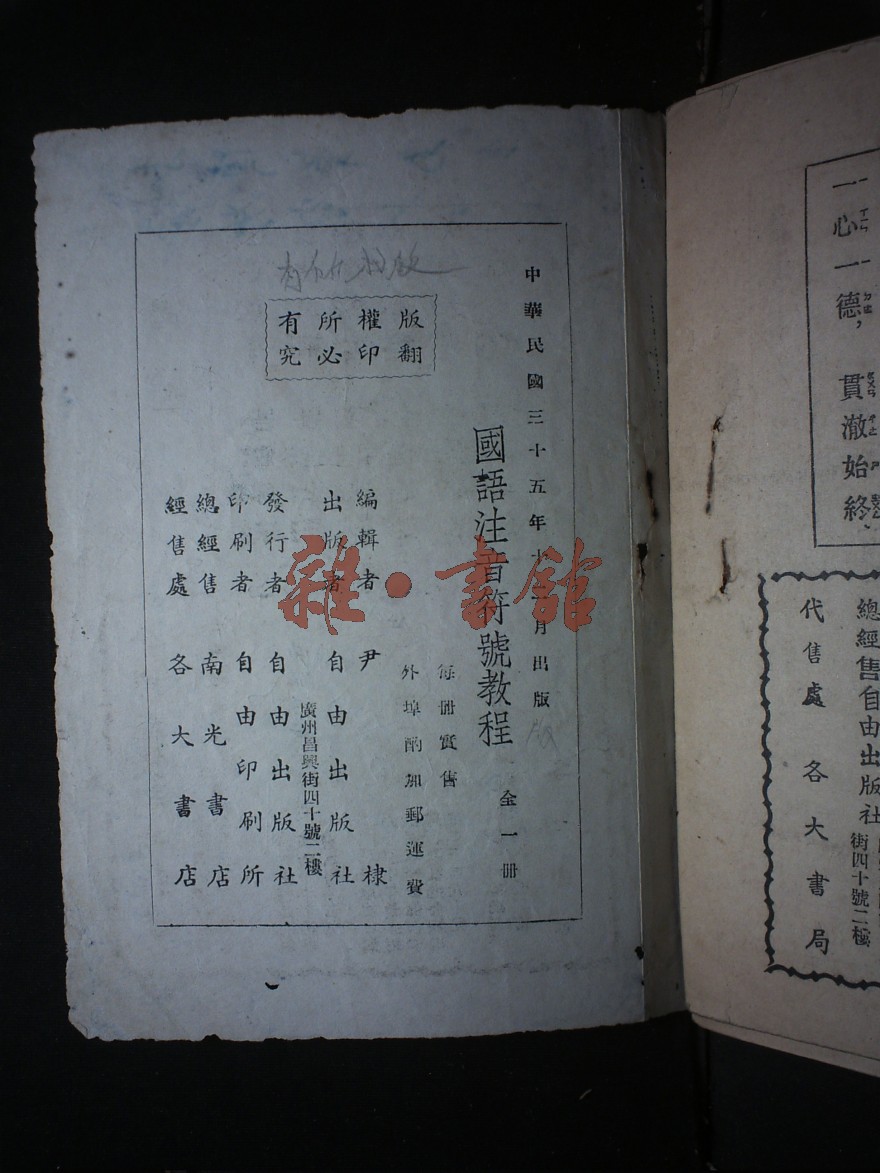 中華民國三十五年十月出版
國語注音符號教程 全一冊
每冊實售
外埠酌加郵運費
版權所有
翻印必究
編輯者 尹棣
出版者 自由出版社
廣州昌興街四十號二樓
發行者 自由出版社
印刷者 自由印刷所
總經售 南光書店
經售處 各大書店
雜·書館
一心一德，貫澈始終
總經售自由出版社
街四十號二樓
代售處 各大書局